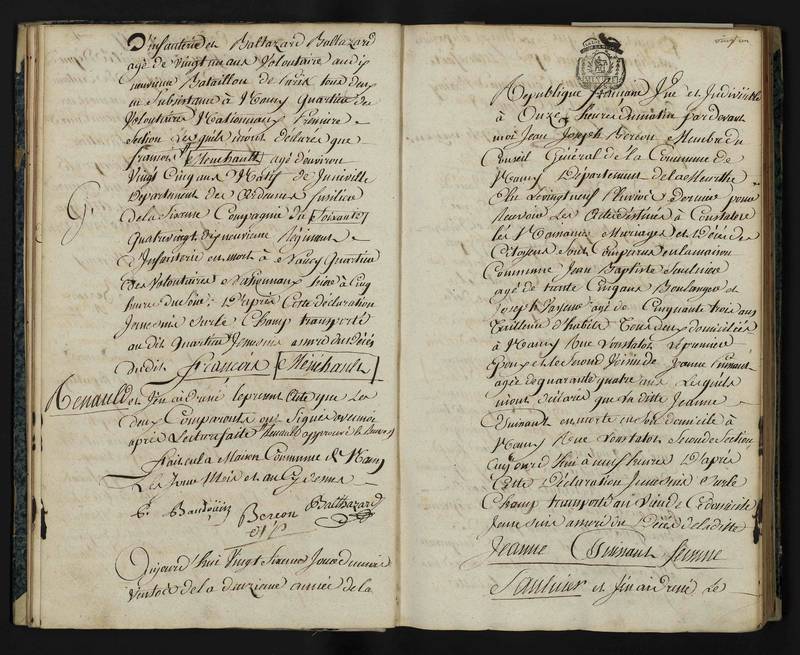 D'infanterie et Baltazard Baltazard
agé de vingt neuf aux Volontaire audit
neuvieme Bataillon de Paris tous deux
en Subsistance à Nancy Quartier de
Volontaires Nationnaux Premiere
Section Lesquels m'ont déclarés que
francois Menehault agé d'environ
Vingt Cinq ans Natif de Juniville
Departement des Ardennes fusilier
De la Sixieme Compagnie du Soixante
Quatrevingt dix neuvieme Régiment
d'Infanterie est mort à Nancy Quartier
des Volontaires Nationnaux hier à Cinq
heures du soir. D'après Cette déclaration
Je me suis sur le Champ transporté
au dit Quartier Je me suis assuré du décés
du dit François Ménéhault
Renauld
et J'en ai dressé le present Acte que Les
deux Comparants ont Signés avec moi
après Lecture faite Renauld approuvé
Fait en la Maison Commune de Nancy
Les Jour Mois et an Cy dessus
Baudouin Bereon Balthazard
Aujourd'hui Vingt Sixieme Jour du mois
Ventose de la deuxieme année de la
République française Une et Indivisible
à Onze heures du matin par devant
moi Jean Joseph Bereon Membre du
Conseil Général de la Commune de
Nancy Département de la Meurthe
Elu Le vingt neuf Pluviose dernier pour
Recevoir Les Actes destinés à Constater
Les Naissances Mariages et Décés des
Citoyens Sont Comparus en la maison
Commune Jean Baptiste Saulnier
agé de trente Cinq ans Boulanger et
Joseph agé de Cinquante trois ans
Tailleur d'habits Tous deux domiciliés
à Nancy Rue Constator Le premier
Epoux et le Second Voisin de Jeanne Cuinant
agée de quarante quatre ans Lesquels
m'ont déclarés que La ditte Jeanne
Cuinant est morte en Son domicile à
Nancy Rue Constator Seconde Section
Aujourd'hui à neuf heures D'après
Cette Déclaration Je me suis sur le
Champ transporté au Lieu de Ce domicile
Je me suis assuré du Décés de la ditte
Jeanne Cuinant femme
Saulnier et J'en ai dressé Le